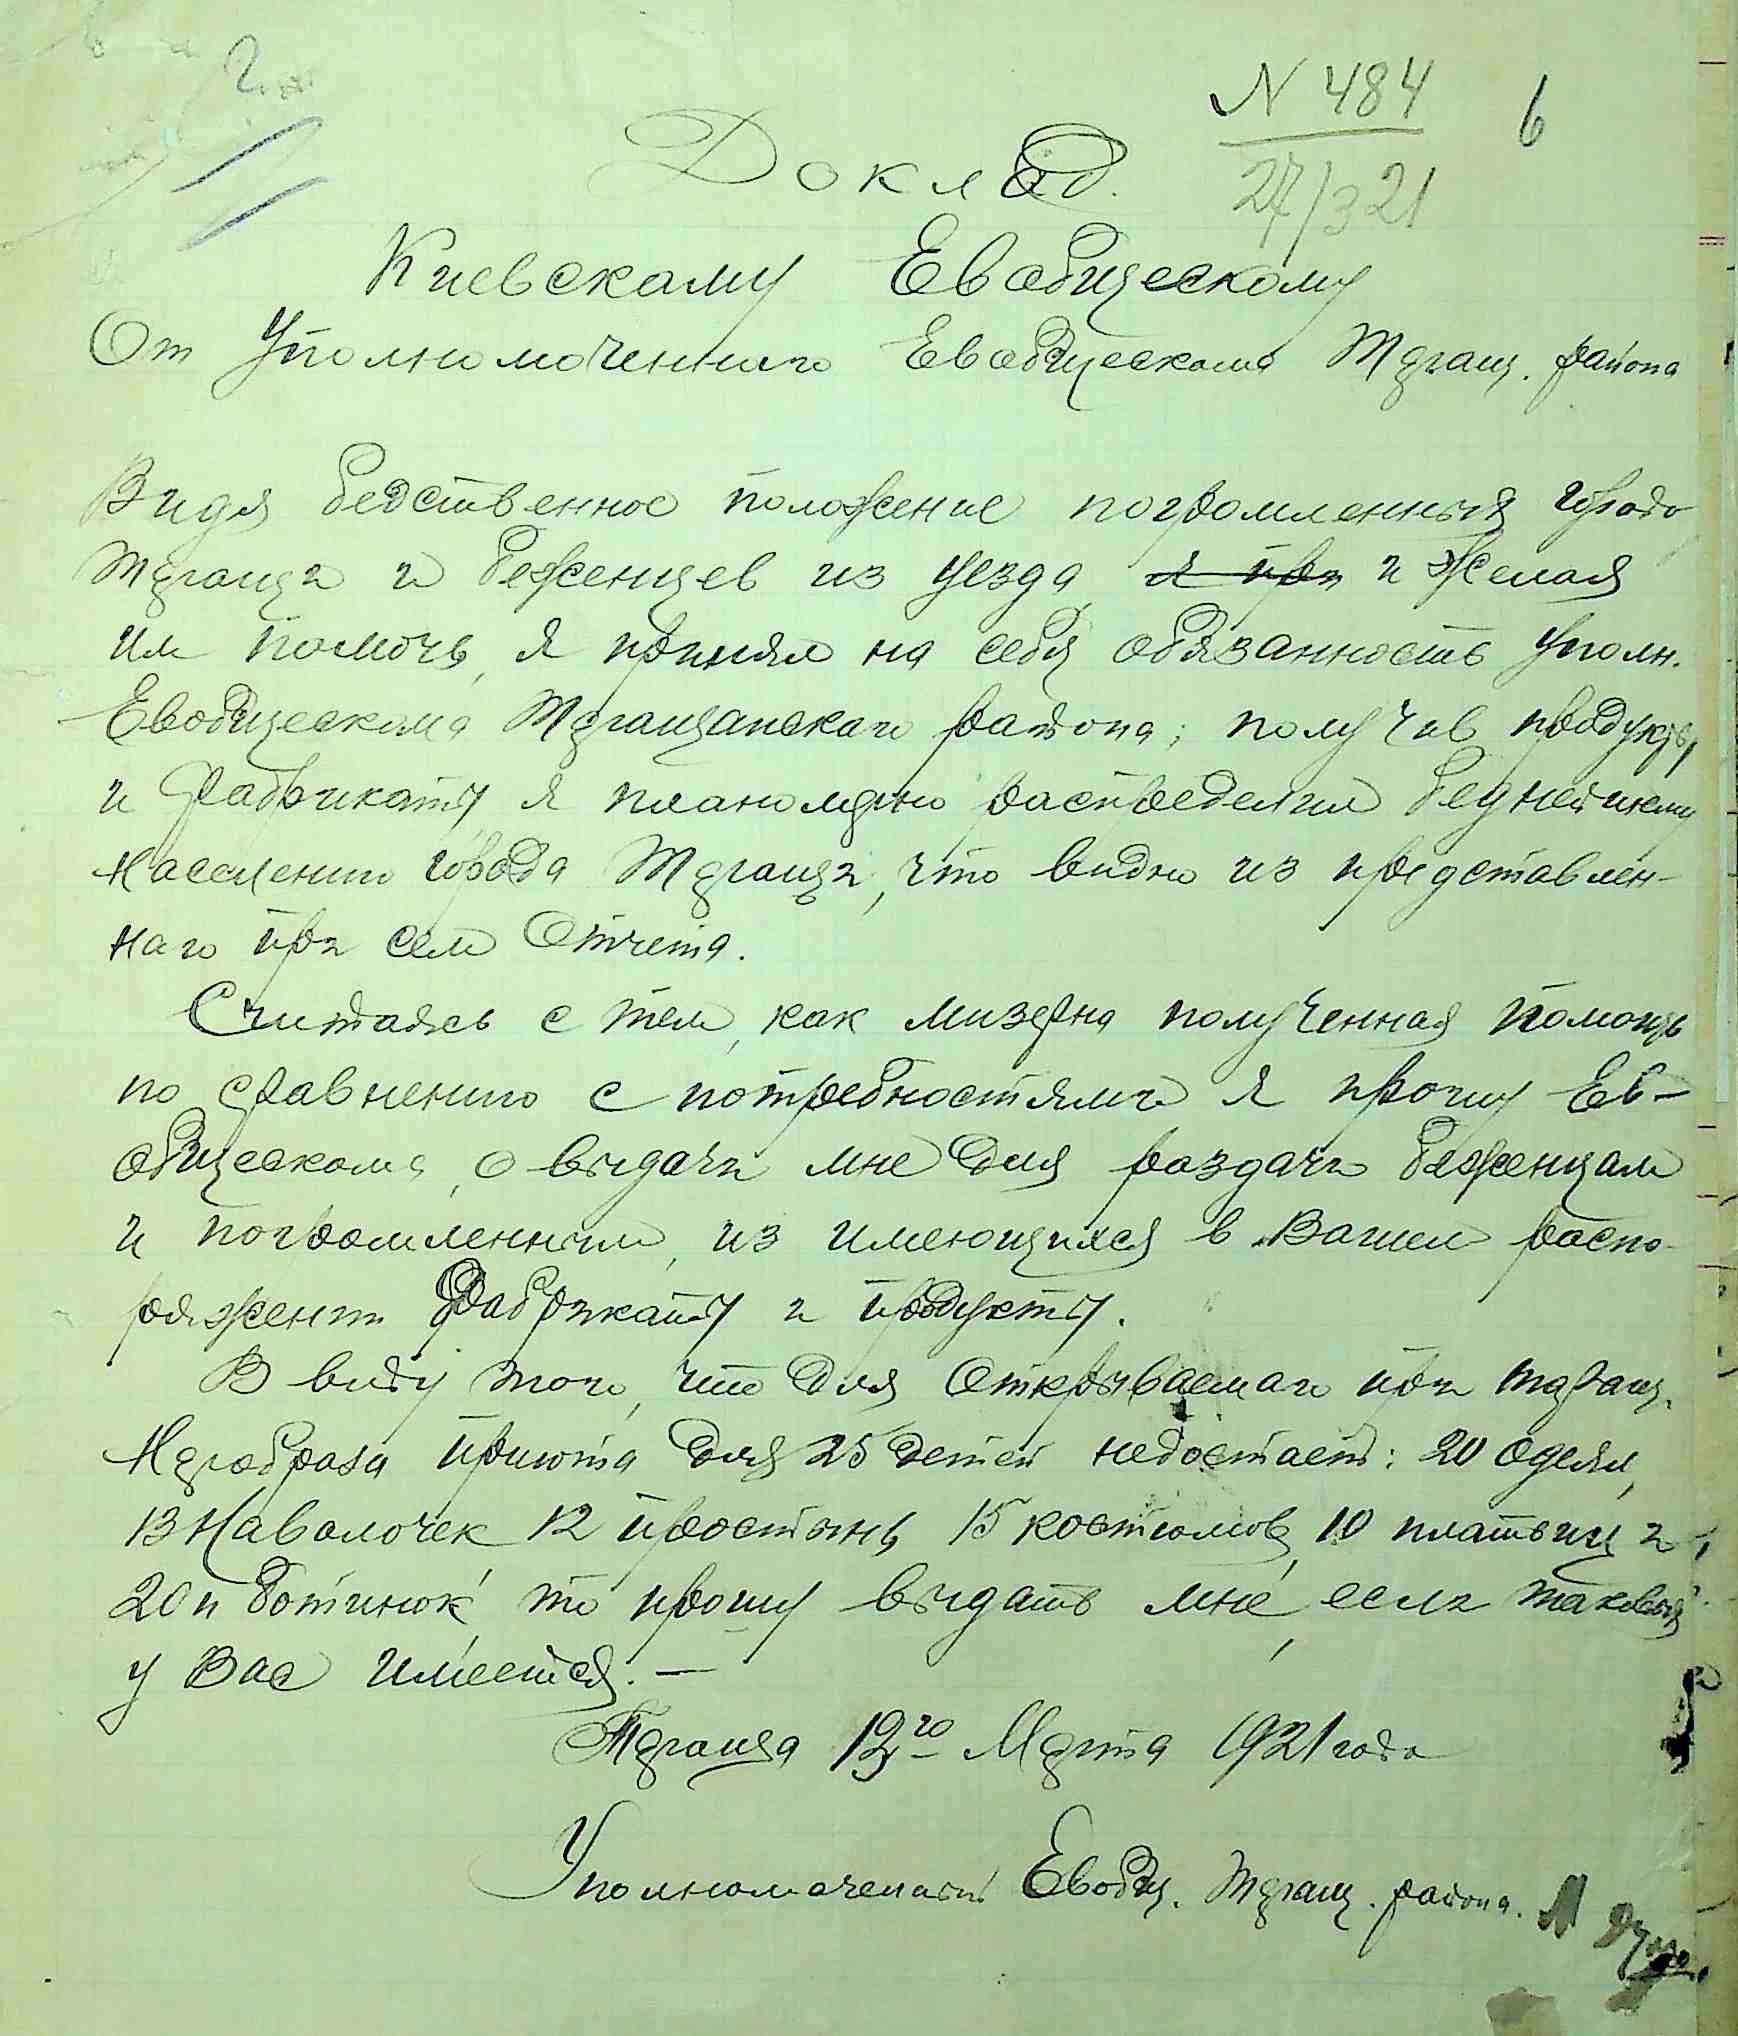 N 484
6
27/3 21
Доклад.
Киевскому Евобщескому
От Уполномоченнаго Евобщескома Таращ. района
Видя бедственное положение погромленных города
Таращи и беженцев из уезда я при и желая
им помочь, я принял на себя обязанность Уполн.
Евобщескома Таращанскаго района; получив продукты
и фабрикаты я планомерно распределил беднейшему
населению города Таращи, что видно из представлен-
наго при сем отчета.
Считаясь с тем, как мизерна полученная помощь
по сравнению с потребностями я прошу Ев-
общескома, о выдачи мне для раздачи беженцам
и погромленным, из имеющихся в Вашем распо-
ряжении фабрикаты и продукты.
В виду того, что для открываемаго при Таращ.
Наробраза приюта для 25 детей недостает: 20 одеял,
13 наволочек 12 простынь 15 костюмов, 10 платьиц и
20 п ботинок, то прошу выдать мне, если таковыя
у Вас имеется. —
Тараща 12го Марта 1921 года
Уполномоченный Евобщ. Таращ. района.